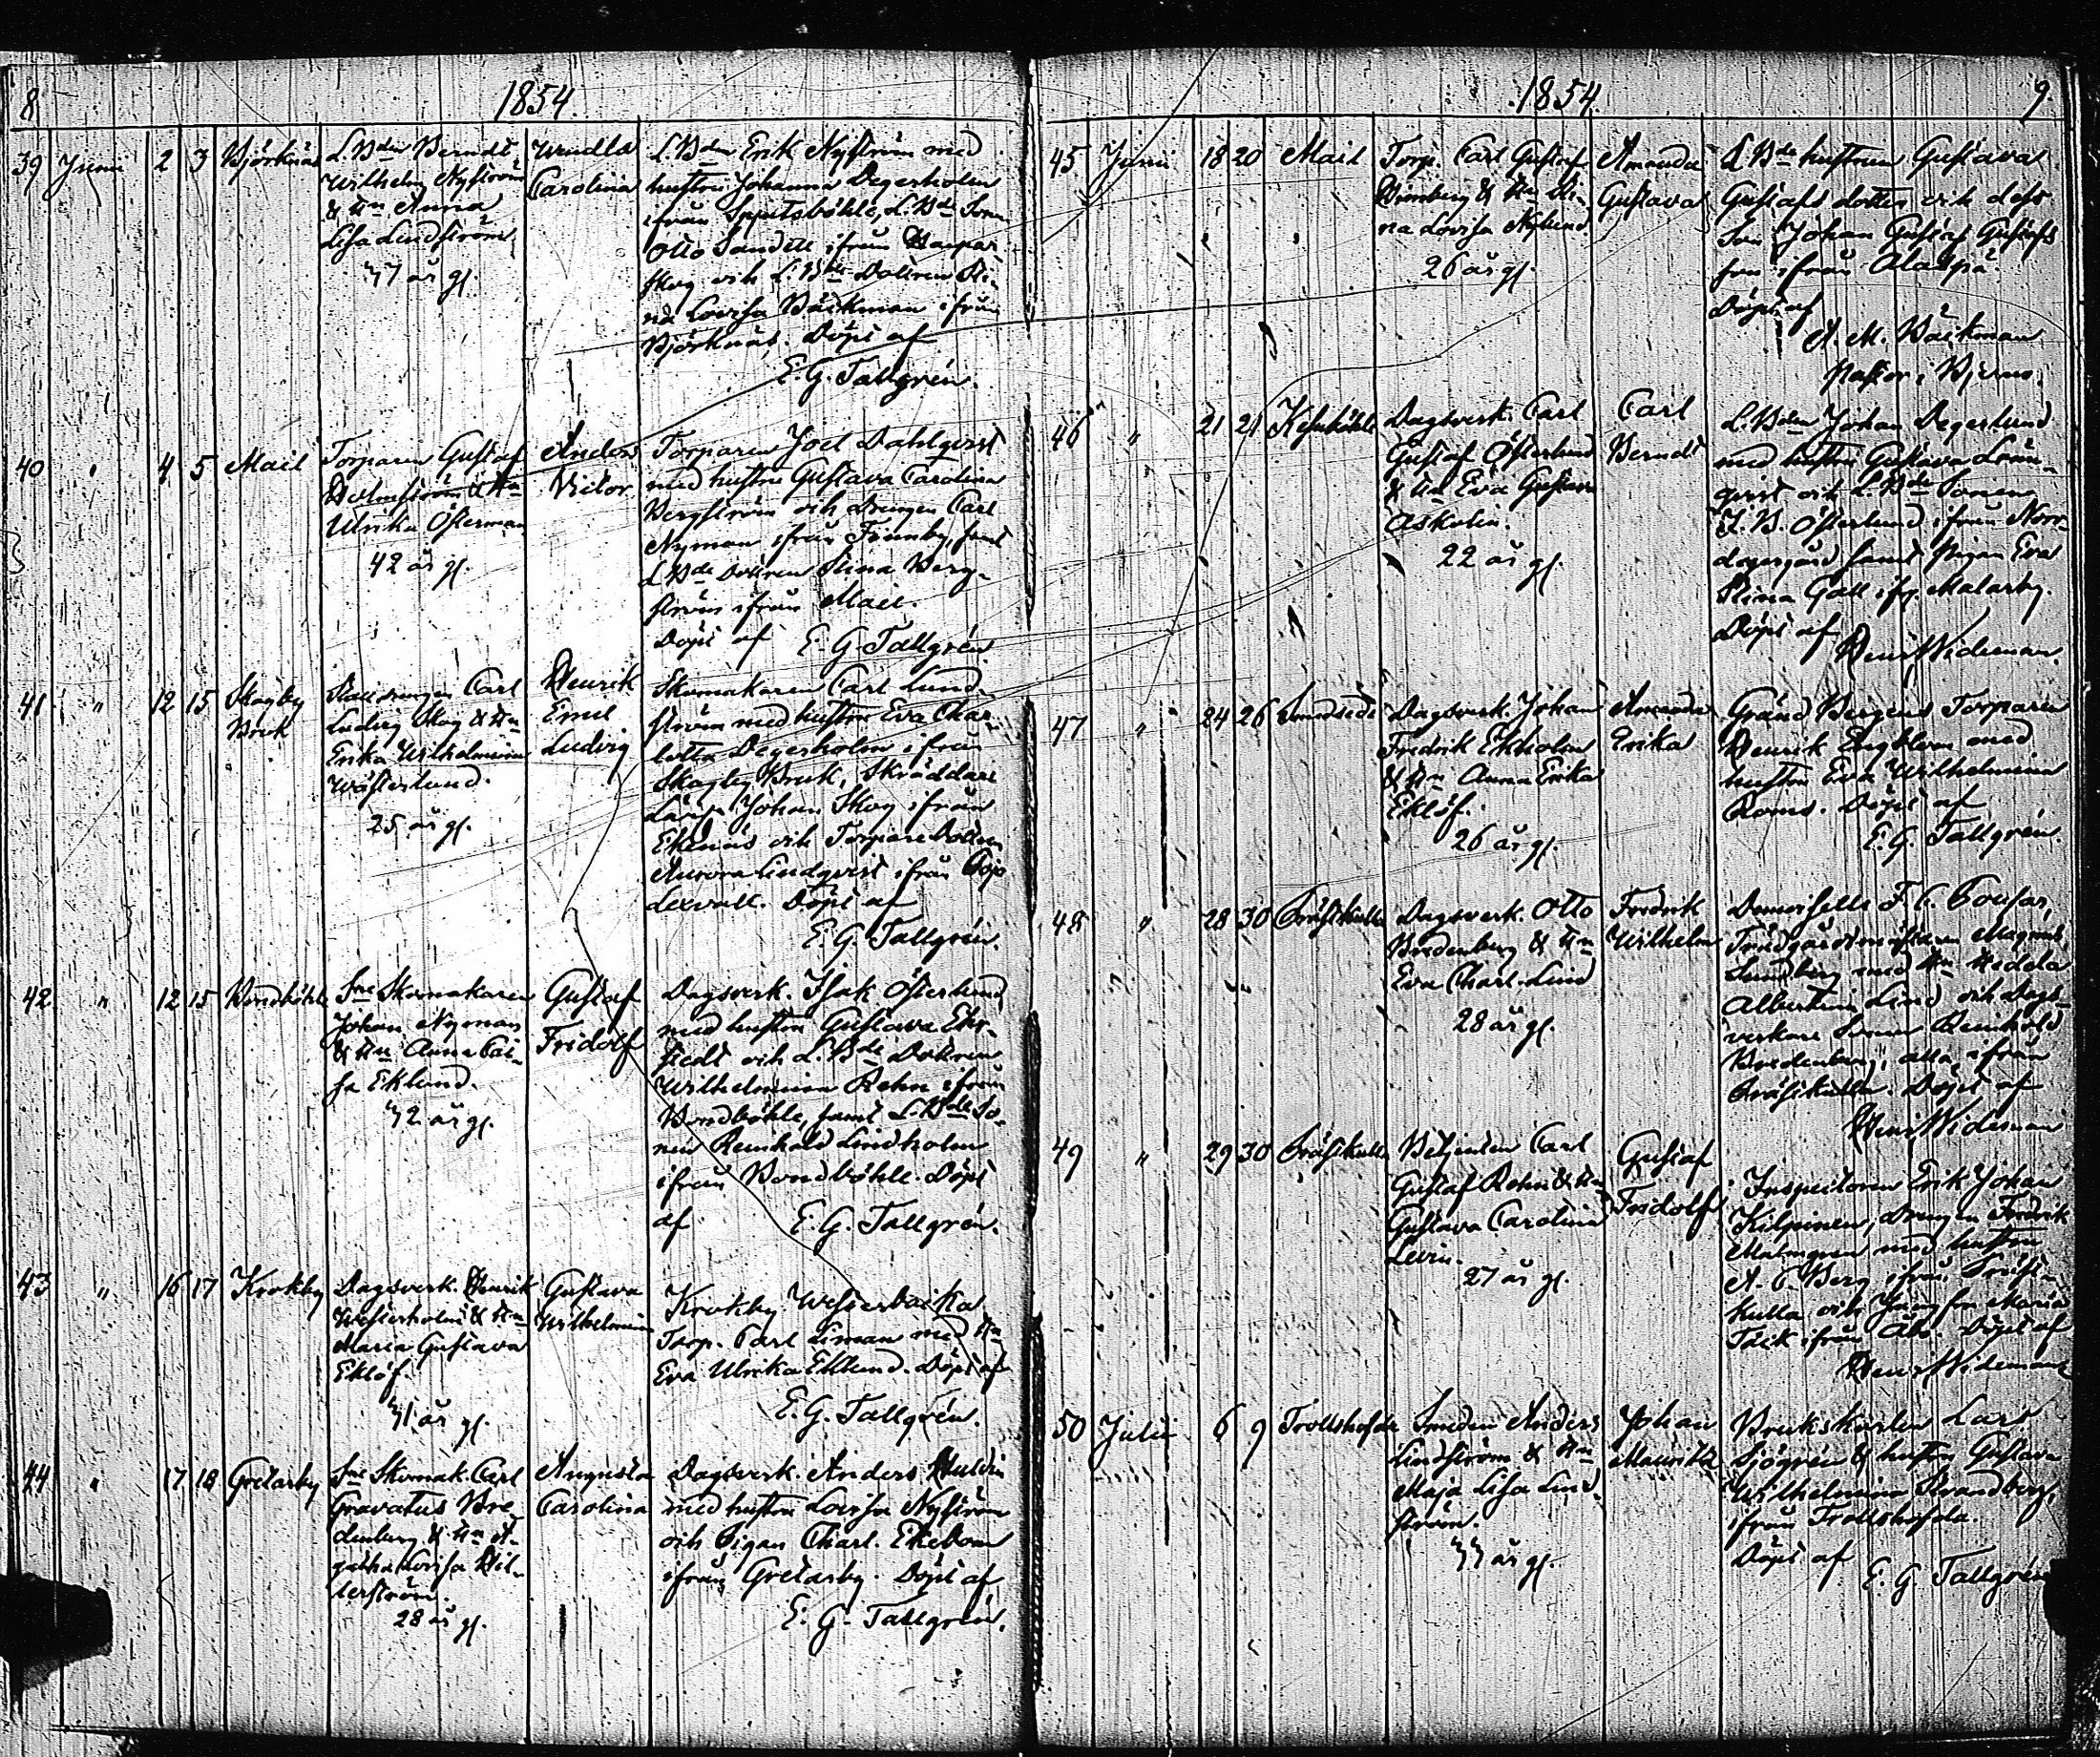 8
1854
39 Junii 2 3 Björknäs
L. Bdn Berndt
Wilhelm Nyström
& Hn Anna
Lisa Lindström
37 år gl.
Wendla
Carolina
L. Bdn Erik Nyström med
hustru Johanna Degerholm
ifrån L. Bde Sonen
Otto Sandell ifrån
skog och L. Bde Dottren Sti-
na Lovisa Bäckman ifrån
Björknäs. Döpt af
E. G. Tallgrén.
40 " 4 5 Mail
Torparen Gustaf
Holmström & Hn
Ulrika Österman
42 år gl.
Anders
Victor
Torparen Joel Dahlqvist
med hustru Gustava Carolina
Bergström och Drengen Carl
Nyman ifrån Finnby, samt
L Bde Dottren Stina Berg-
ström ifrån Mail.
Döpt af E. G. Tallgrén
41 " 12 15 Skogby
Bruk
Stalldrengen Carl
Ludvig Skog & Hn
Erika Wilhelmina
Wästerlund.
25 år gl.
Henrik
Emil
Ludvig
Skomakaren Carl Lund-
ström med hustru Eva Char-
lotta Degerholm ifrån
Skogby Bruk, Skräddare
Johan Skog ifrån
Ekenäs och Torpare Dottren
Aurora Lindqvist ifrån Pojo
Lexvall. Döpt af
E. G. Tallgrén.
42 " 12 15 Bondböhle
Sne Skomakaren
Johan Nyman
& Hn Anna Cai-
sa Eklund.
32 år gl.
Gustaf
Fridolf
Dagsverk. Isak Österlund
med hustru Gustava Ek-
stedt och L. Bde Dottren
Wilhelmina Rehn ifrån
Bondböhle, samt L. Bde So-
nen Reinhold Lindholm
ifrån Bondböhle. Döpt
af E. G. Tallgrén.
43 " 16 17 Krokby
Dagsverk. Henrik
Westerholm & Hn
Maria Gustava
Eklöf.
31 år gl.
Gustava
Wilhelmina
Krokby Westerbacka
Torp. Carl Liman med Hn
Eva Ulrika Eklund. Döpt af
E. G. Tallgrén.
44 " 17 18 Gretarby
Sne Skomak. Carl
Gravatus Bre-
denberg & Hn A-
gatha Lovisa Hil-
terström.
28 år gl.
Augusta
Carolina
Dagsverk. Anders Huldin
med hustru Lovisa Nyström
och Pigan Charl. Ekebom
ifrån Gretarby. Döpt af
E. G. Tallgrén.
1854.
9.
45 Junii 18 20 Mail
Torp. Carl Gustaf
& Hn Sti-
na Lovisa Nylund
26 år gl.
Amanda
Gustava
L Bde hustrun Gustava
Gustafs dotter och dess
Son Johan Gustaf Gustafs
son ifrån
Döpt af
A. M. Bäckman
Pastor i Bjerno.
46 " 21 21
Dagsverk. Carl
Gustaf Österlund
& Hn Eva Gustava
Askolin.
22 år gl.
Carl
Berndt
L. Bdn Johan Degerlund
med hustru Gustava Lön-
qvist och L. Bde Sonen
J. B. Österlund ifrån Norr-
dagergård samt Pigan Eva
Stina Gall ifg. Malarby.
Döpt af
Henr Wideman.
47 " 24 26
Dagsverk. Johan
Fredrik Ekholm
& Hn Anna Erika
Eklöf.
26 år gl.
Amanda
Erika
Gränd Bergens Torparen
Henrik Engblom med
hustru Eva Wilhelmina
Roms. Döpt af
E. G. Tallgrén.
48 " 28 30 Prästkulla
Dagsverk. Otto
Bredenberg & Hn
Eva Charl. Lind
28 år gl.
Fredrik
Wilhelm
Demoiselle F. C.
Trädgårdsmästaren Magnus
Lundberg med Hn Hedda
Albertina Lind och Dags-
verkare Sonen Reinhold
Bredenberg, alla ifrån
Prästkulla. Döpt af
Henr Wideman
49 " 29 30 Prästkulla
Betjenten Carl
Gustaf Rehn & Hn
Gustava Carolina
Levin.
27 år gl.
Gustaf
Fridolf
Inspectoren Erik Johan
Kilpinen, Drengen Fredrik
Malmgren med hustru
A. C. Berg ifrån Präst-
kulla och Jungfru Maria
Täck ifrån Åbo. Döpt af
Henr Wideman
50 Julii 6 9 Trollshofda
Smeden Anders
Lindström & Hn
Maja Lisa Lind-
ström.
33 år gl.
Johan
Mauritz
Brukskarlen Lars
Sjögrén & hustru Gustava
Wilhelmina Strandberg,
ifrån Trollshofda.
Döpt af
E. G. Tallgrén